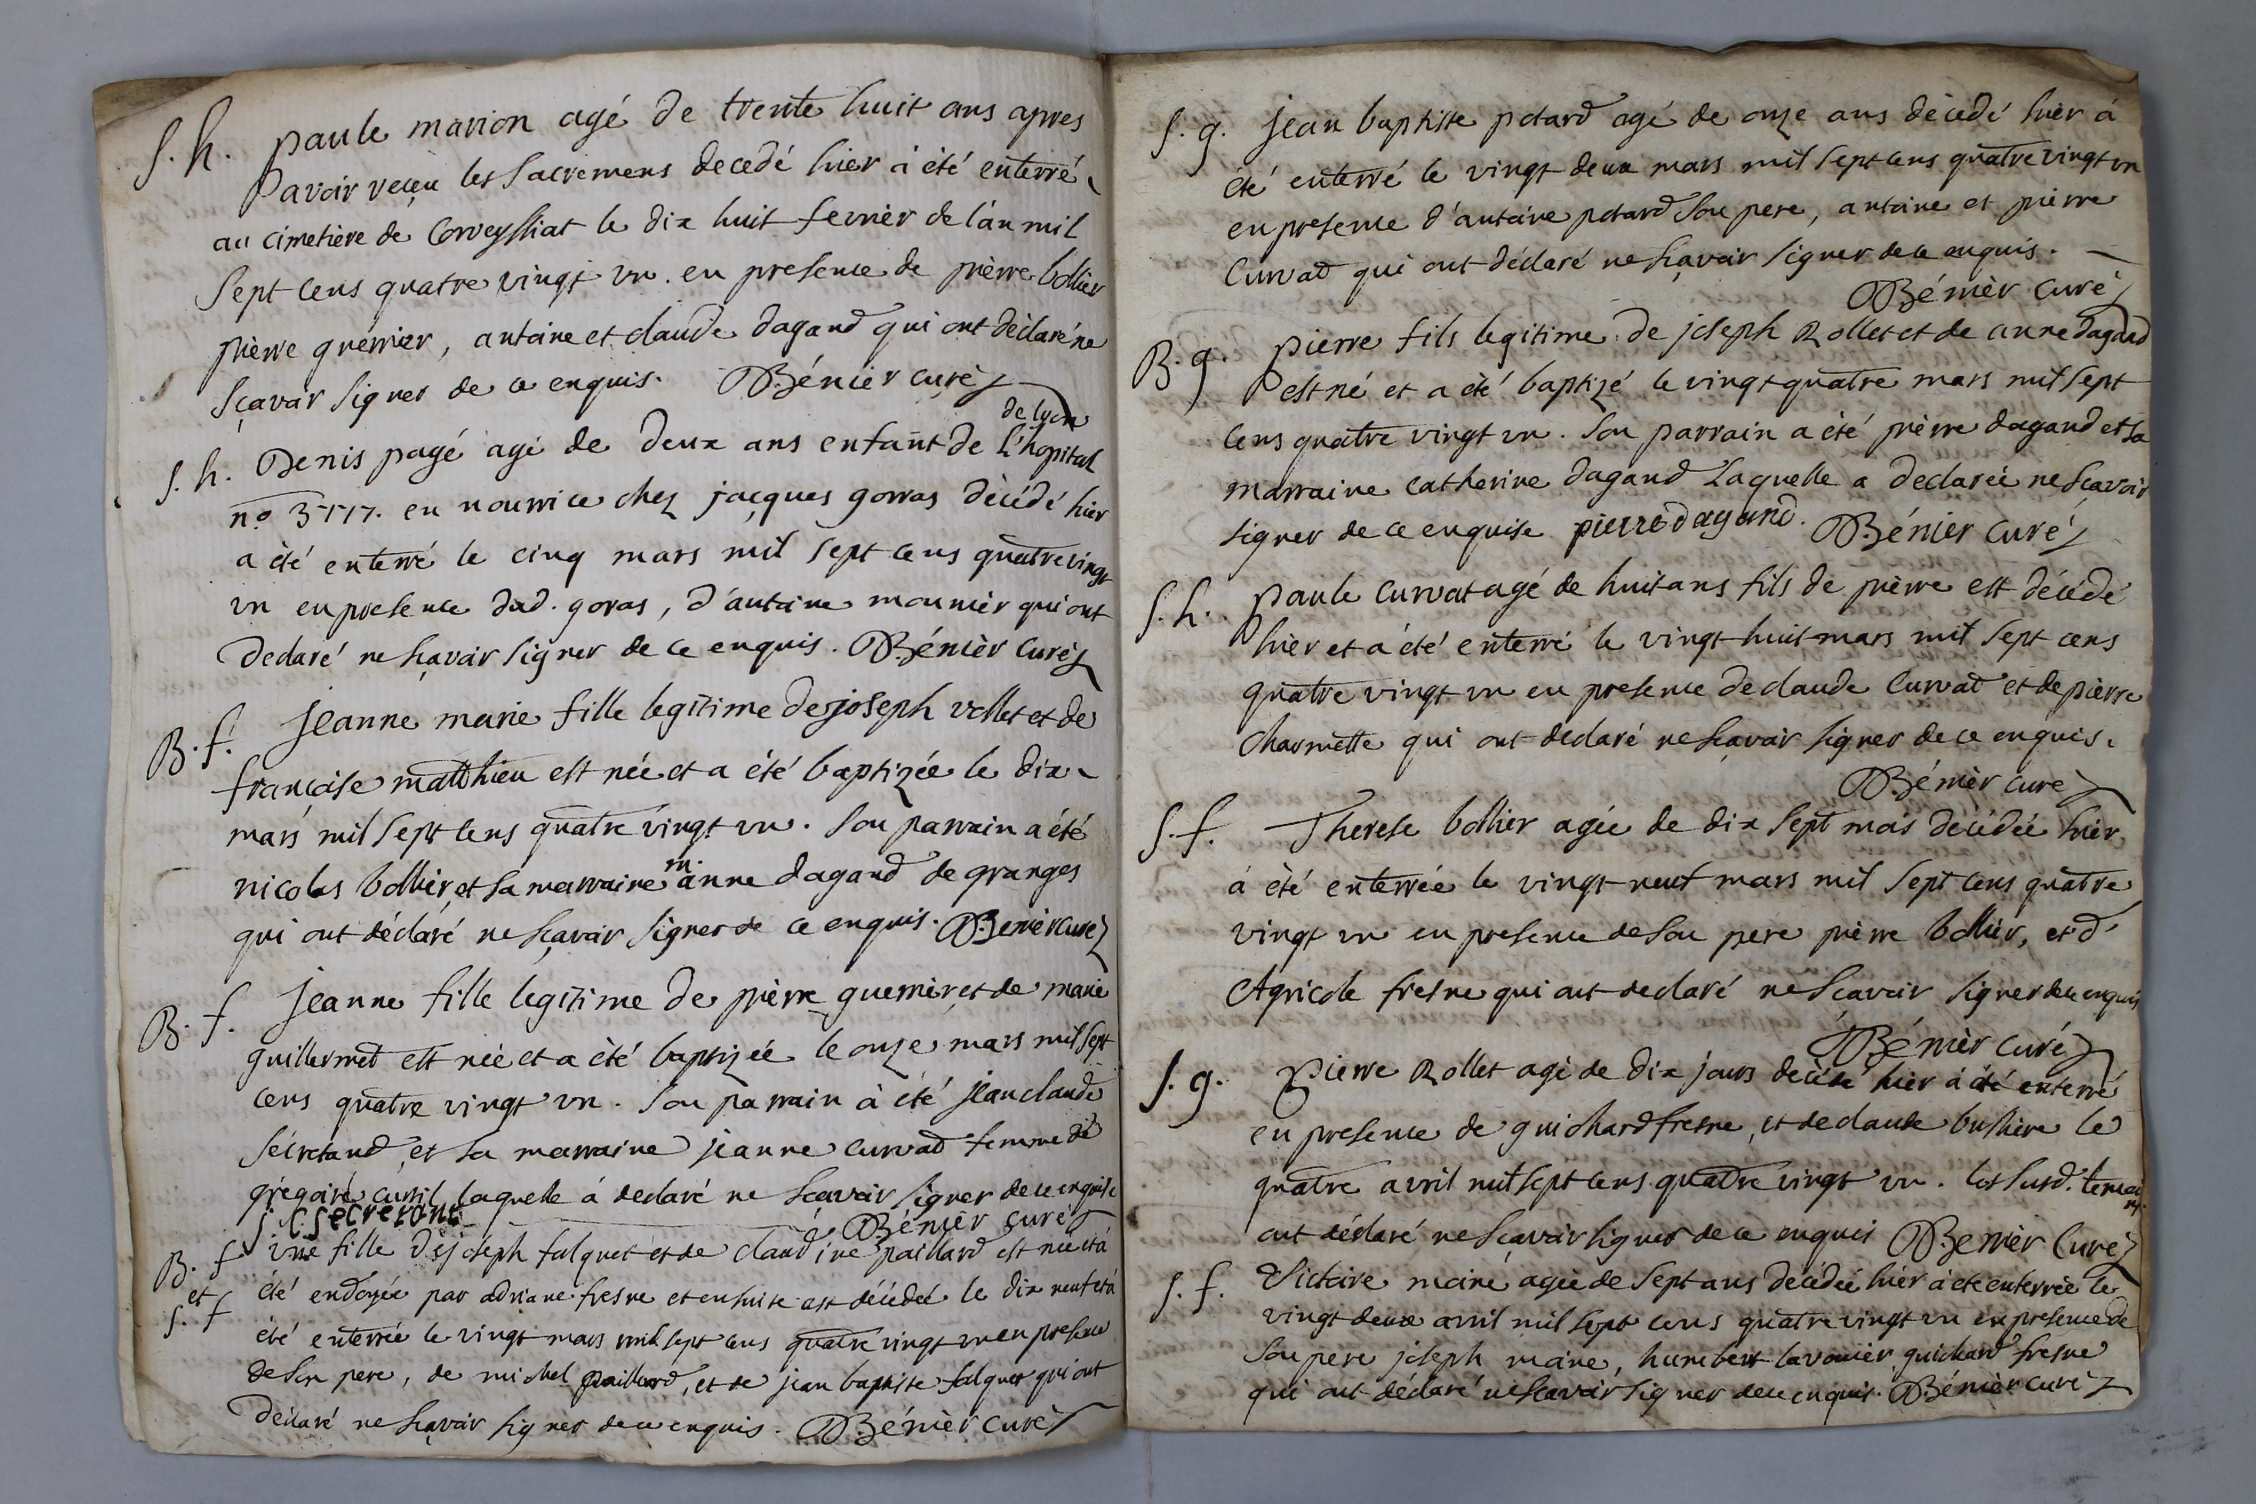 S. h. paule marion agé de trente huit ans apres
avoir reçeu les sacremens decedé hier à été enterré
au cimetière de Corveyssiat le dix huit fevrièr de l'an mil
sept cens quatre vingt un. en presence de pièrre bollier
pièrre guérrier, antoine et claude dagand qui ont déclaré ne
sçavoir signer de ce enquis. Bénier curé
de lyon
S. h. Denis pagé agé de deux ans enfant de l'hopital
n.o en nourrice chez jacques gorras décédé hier
a été enterré le cinq mars mil sept cens quatre vingt
un en presence dud. goras, d'antoine mounièr qui ont
declaré ne sçavoir signer de ce enquis. Bénièr curé
B. f. jeanne marie fille legitime de joseph rollet et de
francoise matthieu est née et a été baptizée le dix
mars mil sept cens quatre vingt un. son parrain a été
nicolas bollier, et sa marraine m. anne dagand de granges
qui ont déclaré ne sçavoir signer de ce enquis. Benièr curé
B. f. jeanne fille legitime de pièrre guerrièr et de marie
guillermet est née et a été baptizée le onze mars mil sept
cens quatre vingt un. son parrain à été jean claude
sécretand, et sa marraine jeanne curvad femme de
grégoire curtil laquelle à declaré ne scavoir signer de ce enquise
j c secretant Bénièr curé
B. f une fille de joseph falquet et de claudine paillard est née et a
et S. f été endoyée par adriane fresne et ensuite est décédée le dix neuf et à
été enterrée le vingt mars mil sept cens quatre vingt un en presence
de son pere, de michel paillard, et de jean baptiste falquet qui ont
déclaré ne sçavoir signer de ce enquis. Bénièr curé
S. g. jean baptiste potard agé de onze ans décédé hièr à
été enterré le vingt deux mars mil sept cens quatre vingt un
en presence d'antoine potard son pere, antoine et pièrre
Curvad qui ont déclaré ne sçavoir signer de ce enquis.
Bénièr curé
B. g. pierre fils legitime de joseph Rollet et de anne dagand
est né et a été baptizé le vingt quatre mars mil sept
cens quatre vingt un. son parrain a été pièrre dagand et sa
marraine catherine dagand laquelle a declarée ne sçavoir
signer de ce enquise pierre dagand. Bénier curé
S. h. paule curvat agé de huit ans fils de pièrre est décédé
hièr et a été enterré le vingt huit mars mil sept cens
quatre vingt un en presence de claude Curvad et de pièrse
charmette qui ont declaré ne sçavoir signer de ce enquis.
Bénièr curé
S. f. Therese bollier agée de dix sept mois décédée hièr
à été enterrée le vingt neuf mars mil sept cens quatre
vingt un en presence de son pere pièrre bollièr, et d'
Agricole fresne qui ont declaré ne scavoir signer de ce enquis
Bénièr curé
S. g. Pierre Rollet agé de dix jours décédé hier à été enterré
en presence de guichard fresne, et de claude buthiere le
quatre avril mil sept cens quatre vingt un. les susd. temoins
ont déclaré ne scavoir signer de ce enquis Benièr Curé
S. f. Victoire moiné agée de sept ans décédée hièr à été enterrée le
vingt deux avril mil sept cens quatre vingt un en presence de
son pere joseph moine, humbert lavonièr, guichard fresne
qui ont déclaré ne scavoir signer de ce enquis. Bénièr curé